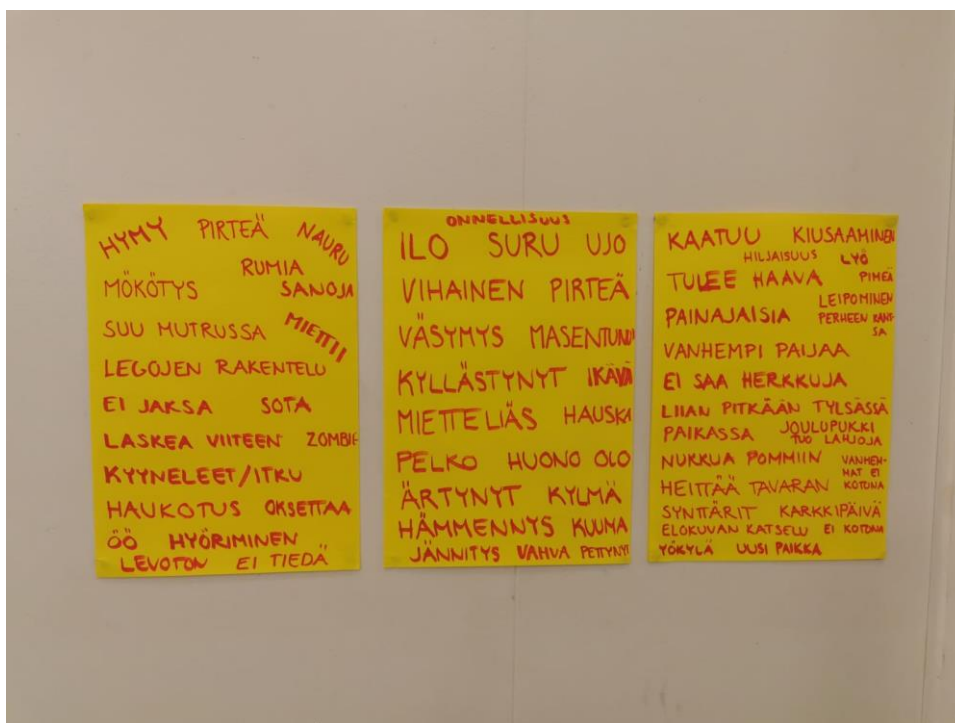 HYMY PIRTEÄ NAURU
RUMIA
MÖKÖTYS SANOJA
SUU MUTRUSSA MIETTII
LEGOJEN RAKENTELU
EI JAKSA SOTA
LASKEA VIITEEN ZOMBIE
KYYNELEET/ITKU
HAUKOTUS OKSETTAA
ÖÖ HYÖRIMINEN
LEVOTON EI TIEDÄ
ONNELLISUUS
ILO SURU UJO
VIHAINEN PIRTEÄ
VÄSYMYS MASENTUNU
KYLLÄSTYNYT IKÄVÄ
MIETTELIÄS HAUSKA
PELKO HUONO OLO
ÄRTYNYT KYLMÄ
HÄMMENNYS KUUMA
JÄNNITYS VAHVA PETTYNY
KAATUU KIUSAAMINEN
HILJAISUUS LYÖ
TULEE HAAVA PIMEÄ
PAINAJAISIA LEIPOMINEN
PERHEEN KANS-
SA
VANHEMPI PAIJAA
EI SAA HERKKUJA
LIIAN PITKÄÄN TYLSÄSSÄ
PAIKASSA JOULUPUKKI
TUO LAHJOJA
NUKKUA POMMIIN VANHEM-
MAT EI
HEITTÄÄ TAVARAN KOTONA
SYNTTÄRIT KARKKIPÄIVÄ
ELOKUVAN KATSELU EI KOTONA
YÖKYLÄ UUSI PAIKKA